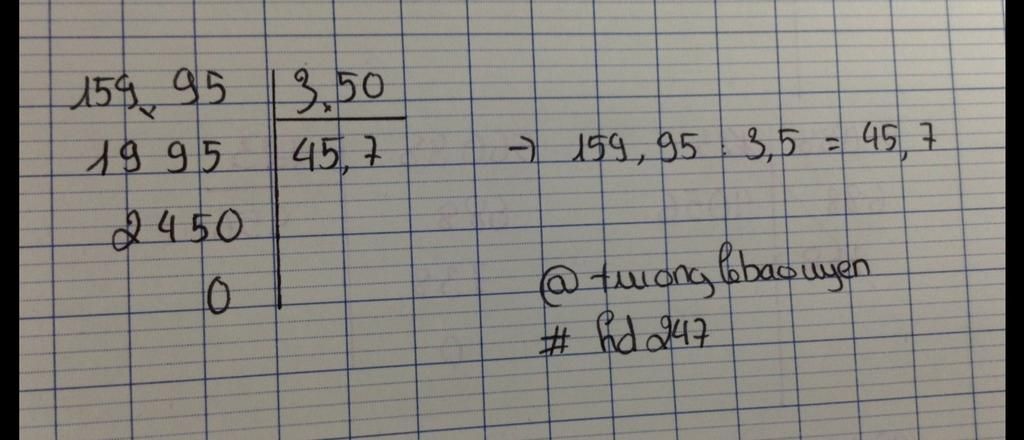 159,95 3,50
1995 45,7 → 159,95 : 3,5 = 45,7
2450
0
@ truonglebaouyen
# hd247